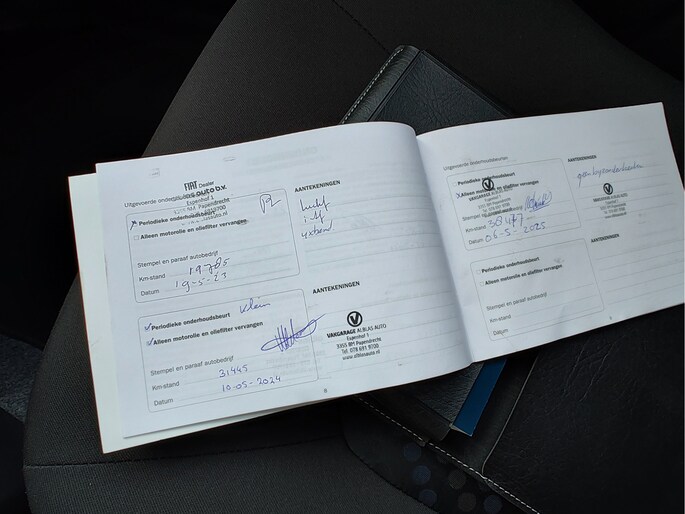 FIAT Dealer
Uitgevoerde onderhoudsbeurten
auto b.v.
Espenhof 1
Papendrecht
Periodieke onderhoudsbeurt
Alleen motorolie en oliefilter vervangen
Stempel en paraaf autobedrijf
Km-stand 19785
Datum 19-5-23
AANTEKENINGEN
Klein
Periodieke onderhoudsbeurt
Alleen motorolie en oliefilter vervangen
Stempel en paraaf autobedrijf
Km-stand 31445
Datum 10-05-2024
AANTEKENINGEN
VAKGARAGE ALBLAS AUTO
Espenhof 1
3355 BM Papendrecht
Tel. 078 691 9700
www.alblasauto.nl
8
Uitgevoerde onderhoudsbeurten
Periodieke onderhoudsbeurt
Alleen motorolie en oliefilter vervangen
VAKGARAGE ALBLAS AUTO
Stempel en paraaf
Km-stand
Datum 06-5-2025
AANTEKENINGEN
geen bijzonderheden
Periodieke onderhoudsbeurt
Alleen motorolie en oliefilter vervangen
Stempel en paraaf autobedrijf
Km-stand
Datum
AANTEKENINGEN